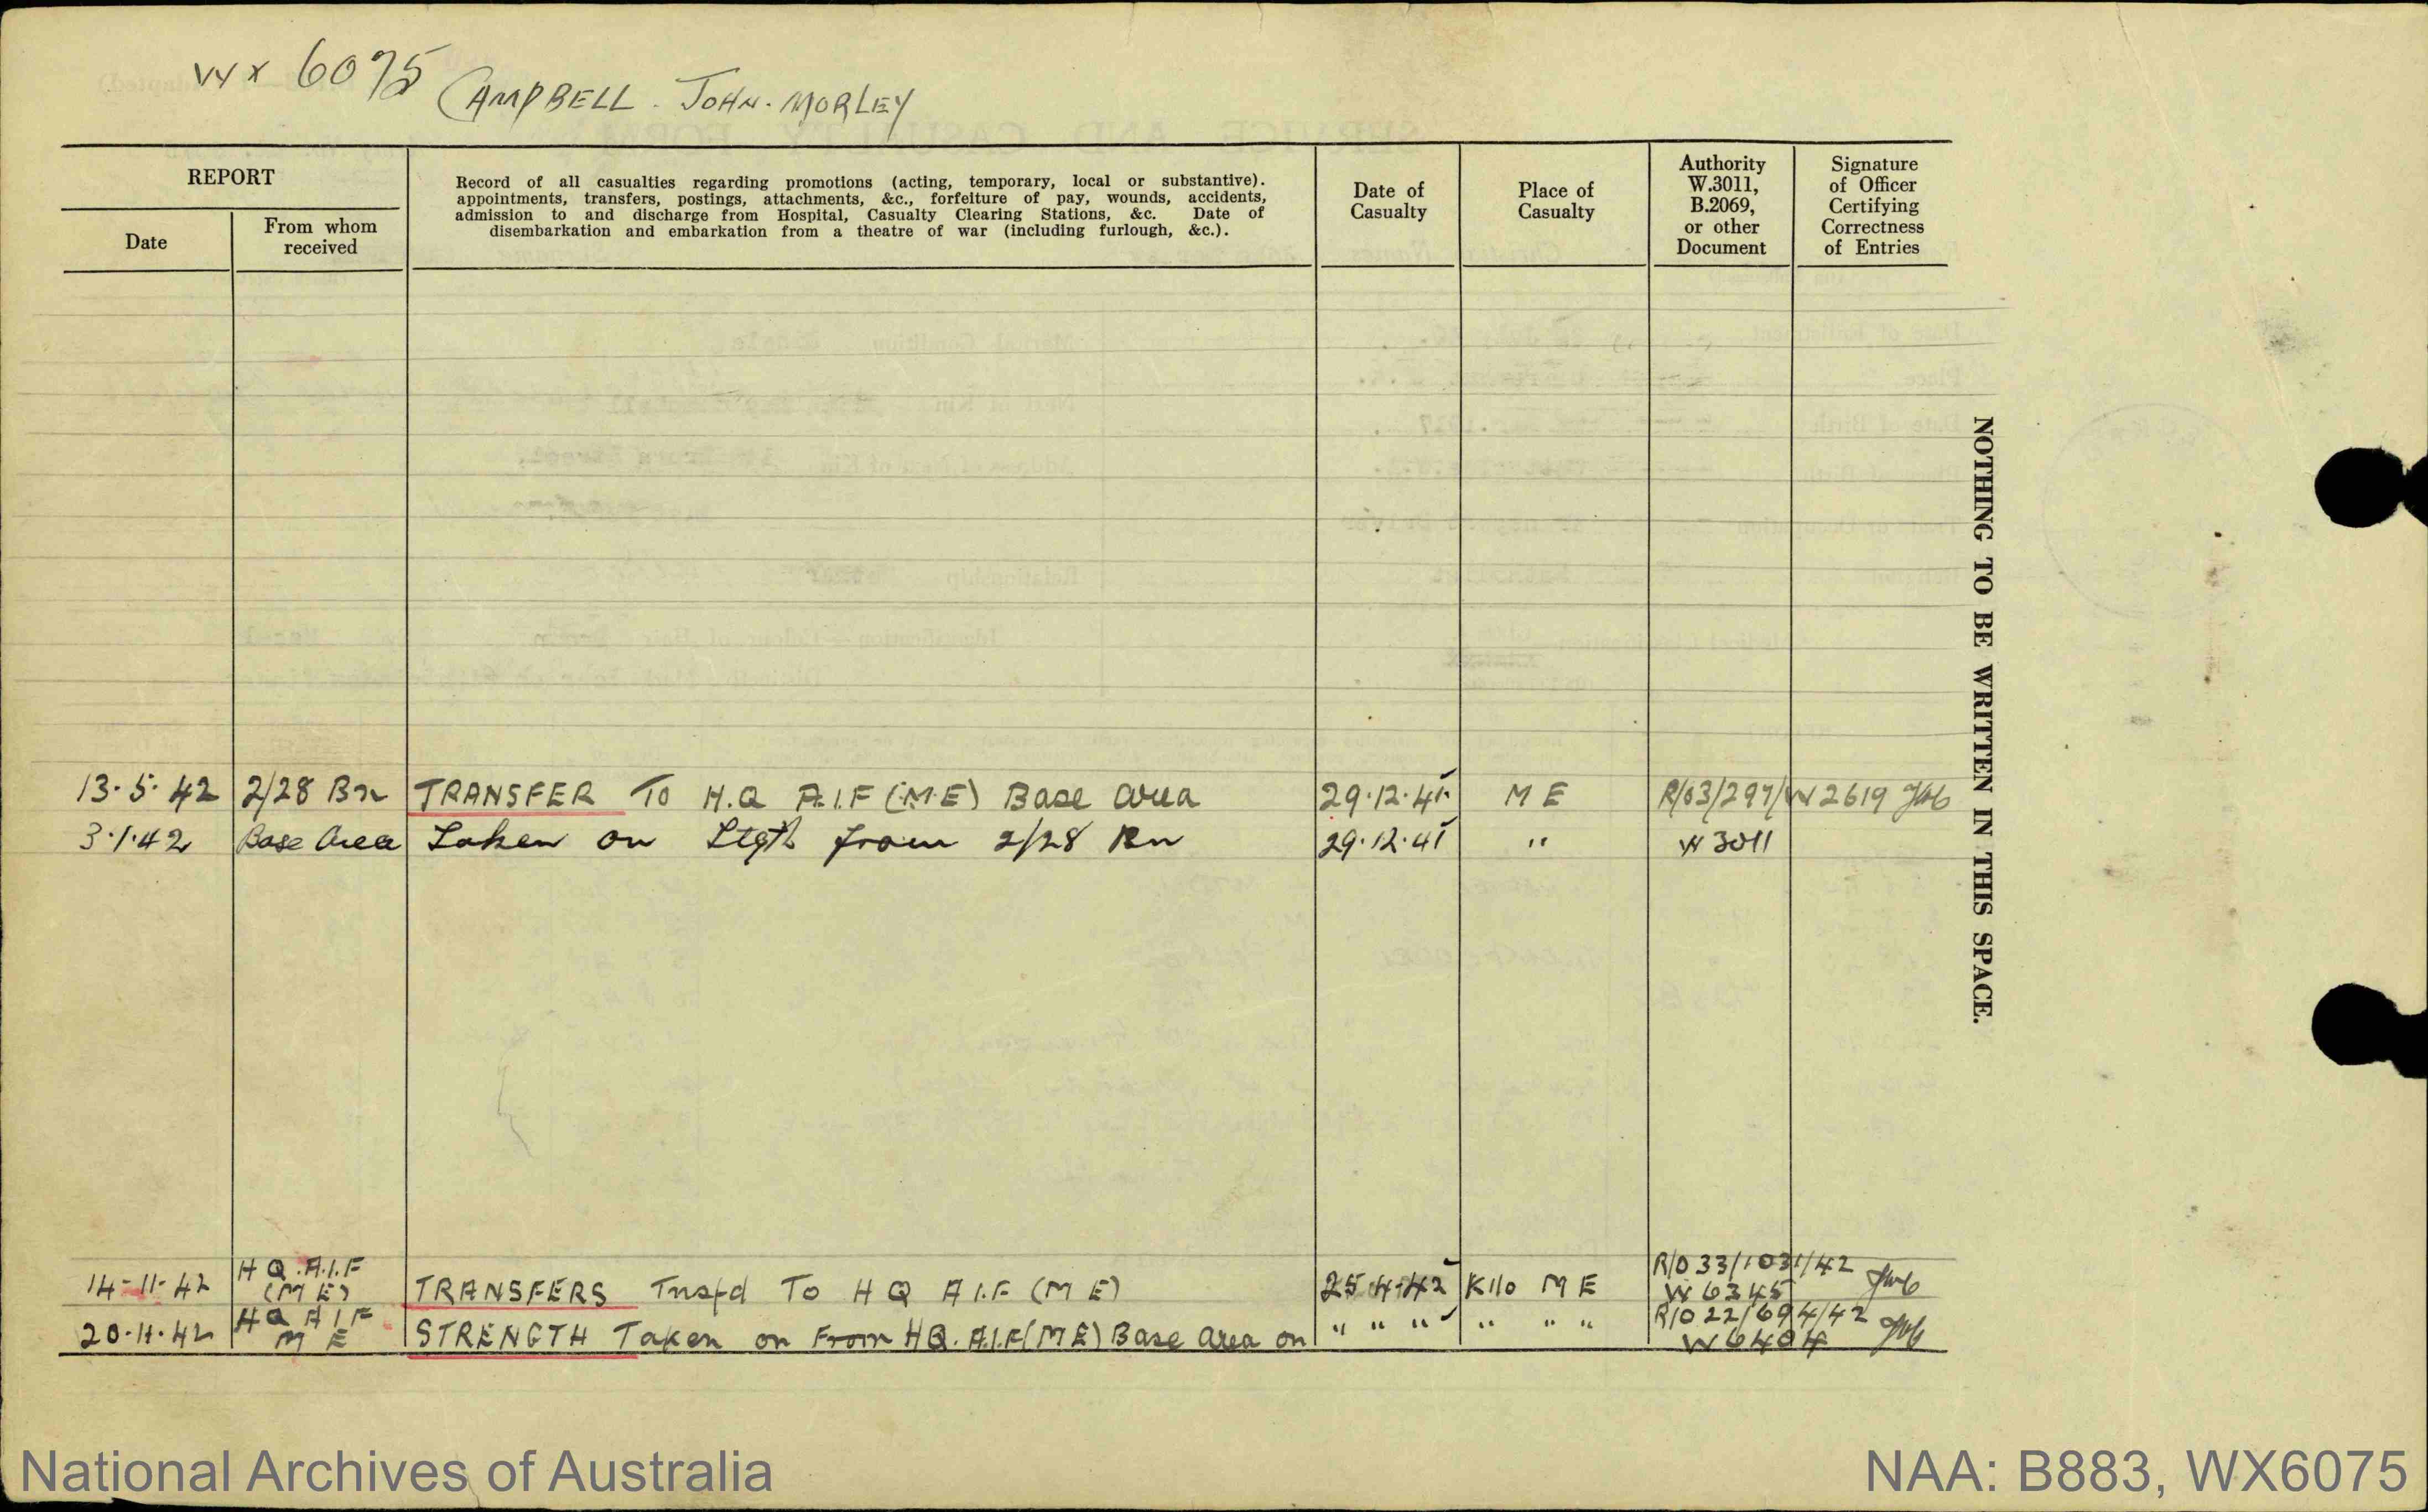 WX 6075
CAMPBELL. JOHN. MORLEY
REPORT
Date
From whom
received
Record of all casualties regarding promotions (acting, temporary, local or substantive).
appointments, transfers, postings, attachments, &c., forfeiture of pay, wounds, accidents,
admission to and discharge from Hospital, Casualty Clearing Stations, &c. Date of
disembarkation and embarkation from a theatre of war (including furlough, &c.).
Date of
Casualty
Place of
Casualty
Authority
W.3011,
B.2069,
or other
Document
Signature
of Officer
Certifying
Correctness
of Entries
13.5.42 2/28 Bn TRANSFER TO H.Q A.I.F (M.E) Base Area 29.12.41 M E R/03/297/W2619
3.1.42 Base Area Taken on Stgth from 2/28 Bn 29.12.41 " W3011
14-11-42 HQ.A.I.F (ME) TRANSFERS Tnsfd To H Q A I.F (M E) 25.4.42 K110 M E R/O 33/1031/42 W 6345
20.11.42 HQ A I F M E STRENGTH Taken on From HQ. A.I.F(ME) Base Area on " " " " " " R/O 22/694/42 W6404
NOTHING TO BE WRITTEN IN THIS SPACE.
National Archives of Australia
NAA: B883, WX6075